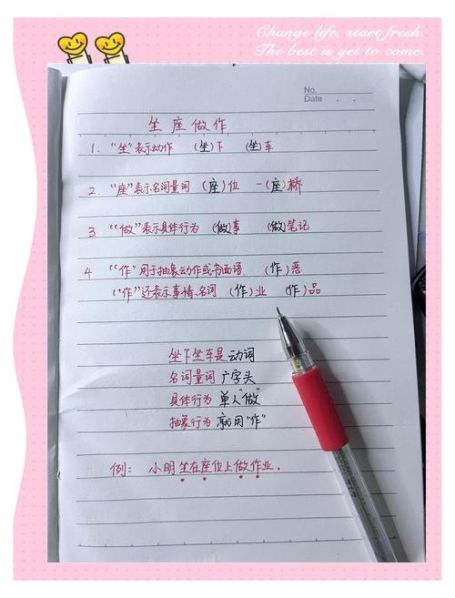 Change life, start fresh.
The best is yet to come.
No.
Date . .
坐座做作
1. “坐”表示动作 (坐)下 (坐)车
2. “座”表示名词量词 (座)位 一(座)桥
3 “做”表示具体行为 (做)事 (做)笔记
4 “作”用于抽象动作或书面语 (作)恶
“作”还表示事情、名词 (作)业 (作)品
坐下坐车是动词
名词量词广字头
具体行为单人“做”
抽象行为就用“作”
例：小明坐在座位上做作业.